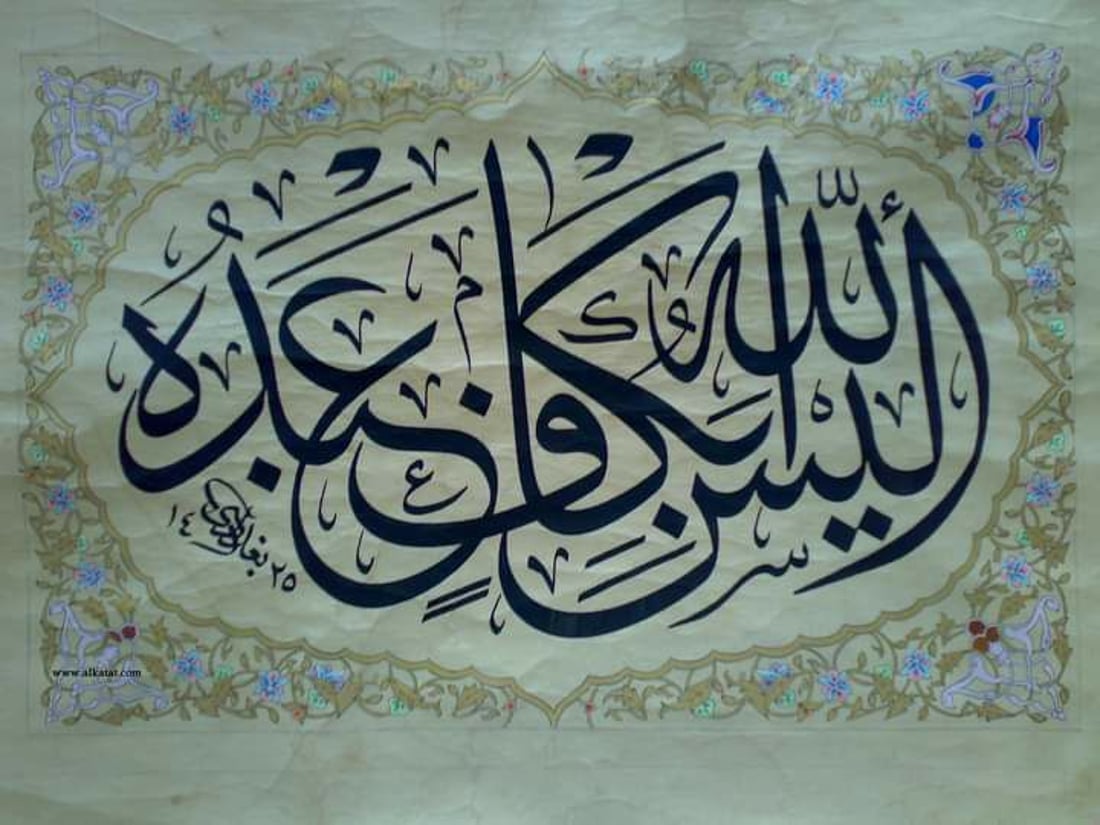 أليس الله بكافٍ عبدَهُ
١٤٢٥
www.alkatat.com